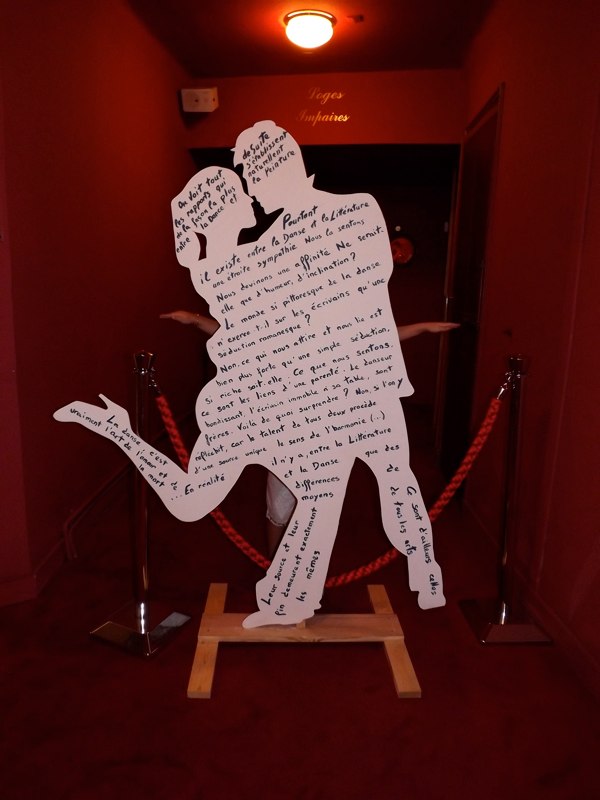 Loges
Impaires
On doit tout
de suite
les rapports qui
s'établissent
de la façon la plus
naturellent
entre la Danse et
la Peinture
Pourtant
il existe entre la Danse et la Littérature
une étroite sympathie Nous la sentons.
Nous devinons une affinité Ne serait.
elle que d'humeur, d'inclination?
Le monde si pittoresque de la danse
n'exerce.t.il sur les écrivains qu'une
séduction romanesque?
Non. ce qui nous attire et nous lie est
bien plus forte qu'une simple séduction,
si riche soit.elle. Ce que nous sentons.
ce sont les liens d'une parenté. Le danseur
bondissant. l'écrivain immobile à sa table, sont
frères. Voilà de quoi surprendre? Non, si l'on y
réfléchit, car le talent de tous deux procède
d'une source unique le sens de l'harmonie (..)
...En réalité il n'y a, entre la Littérature
et la Danse que des
différences de
moyens
Leur source et leur
fin demeurent exactement
les mêmes
Ce sont d'ailleurs celles
de tous les arts
La danse c'est
vraiment l'art de
la mort